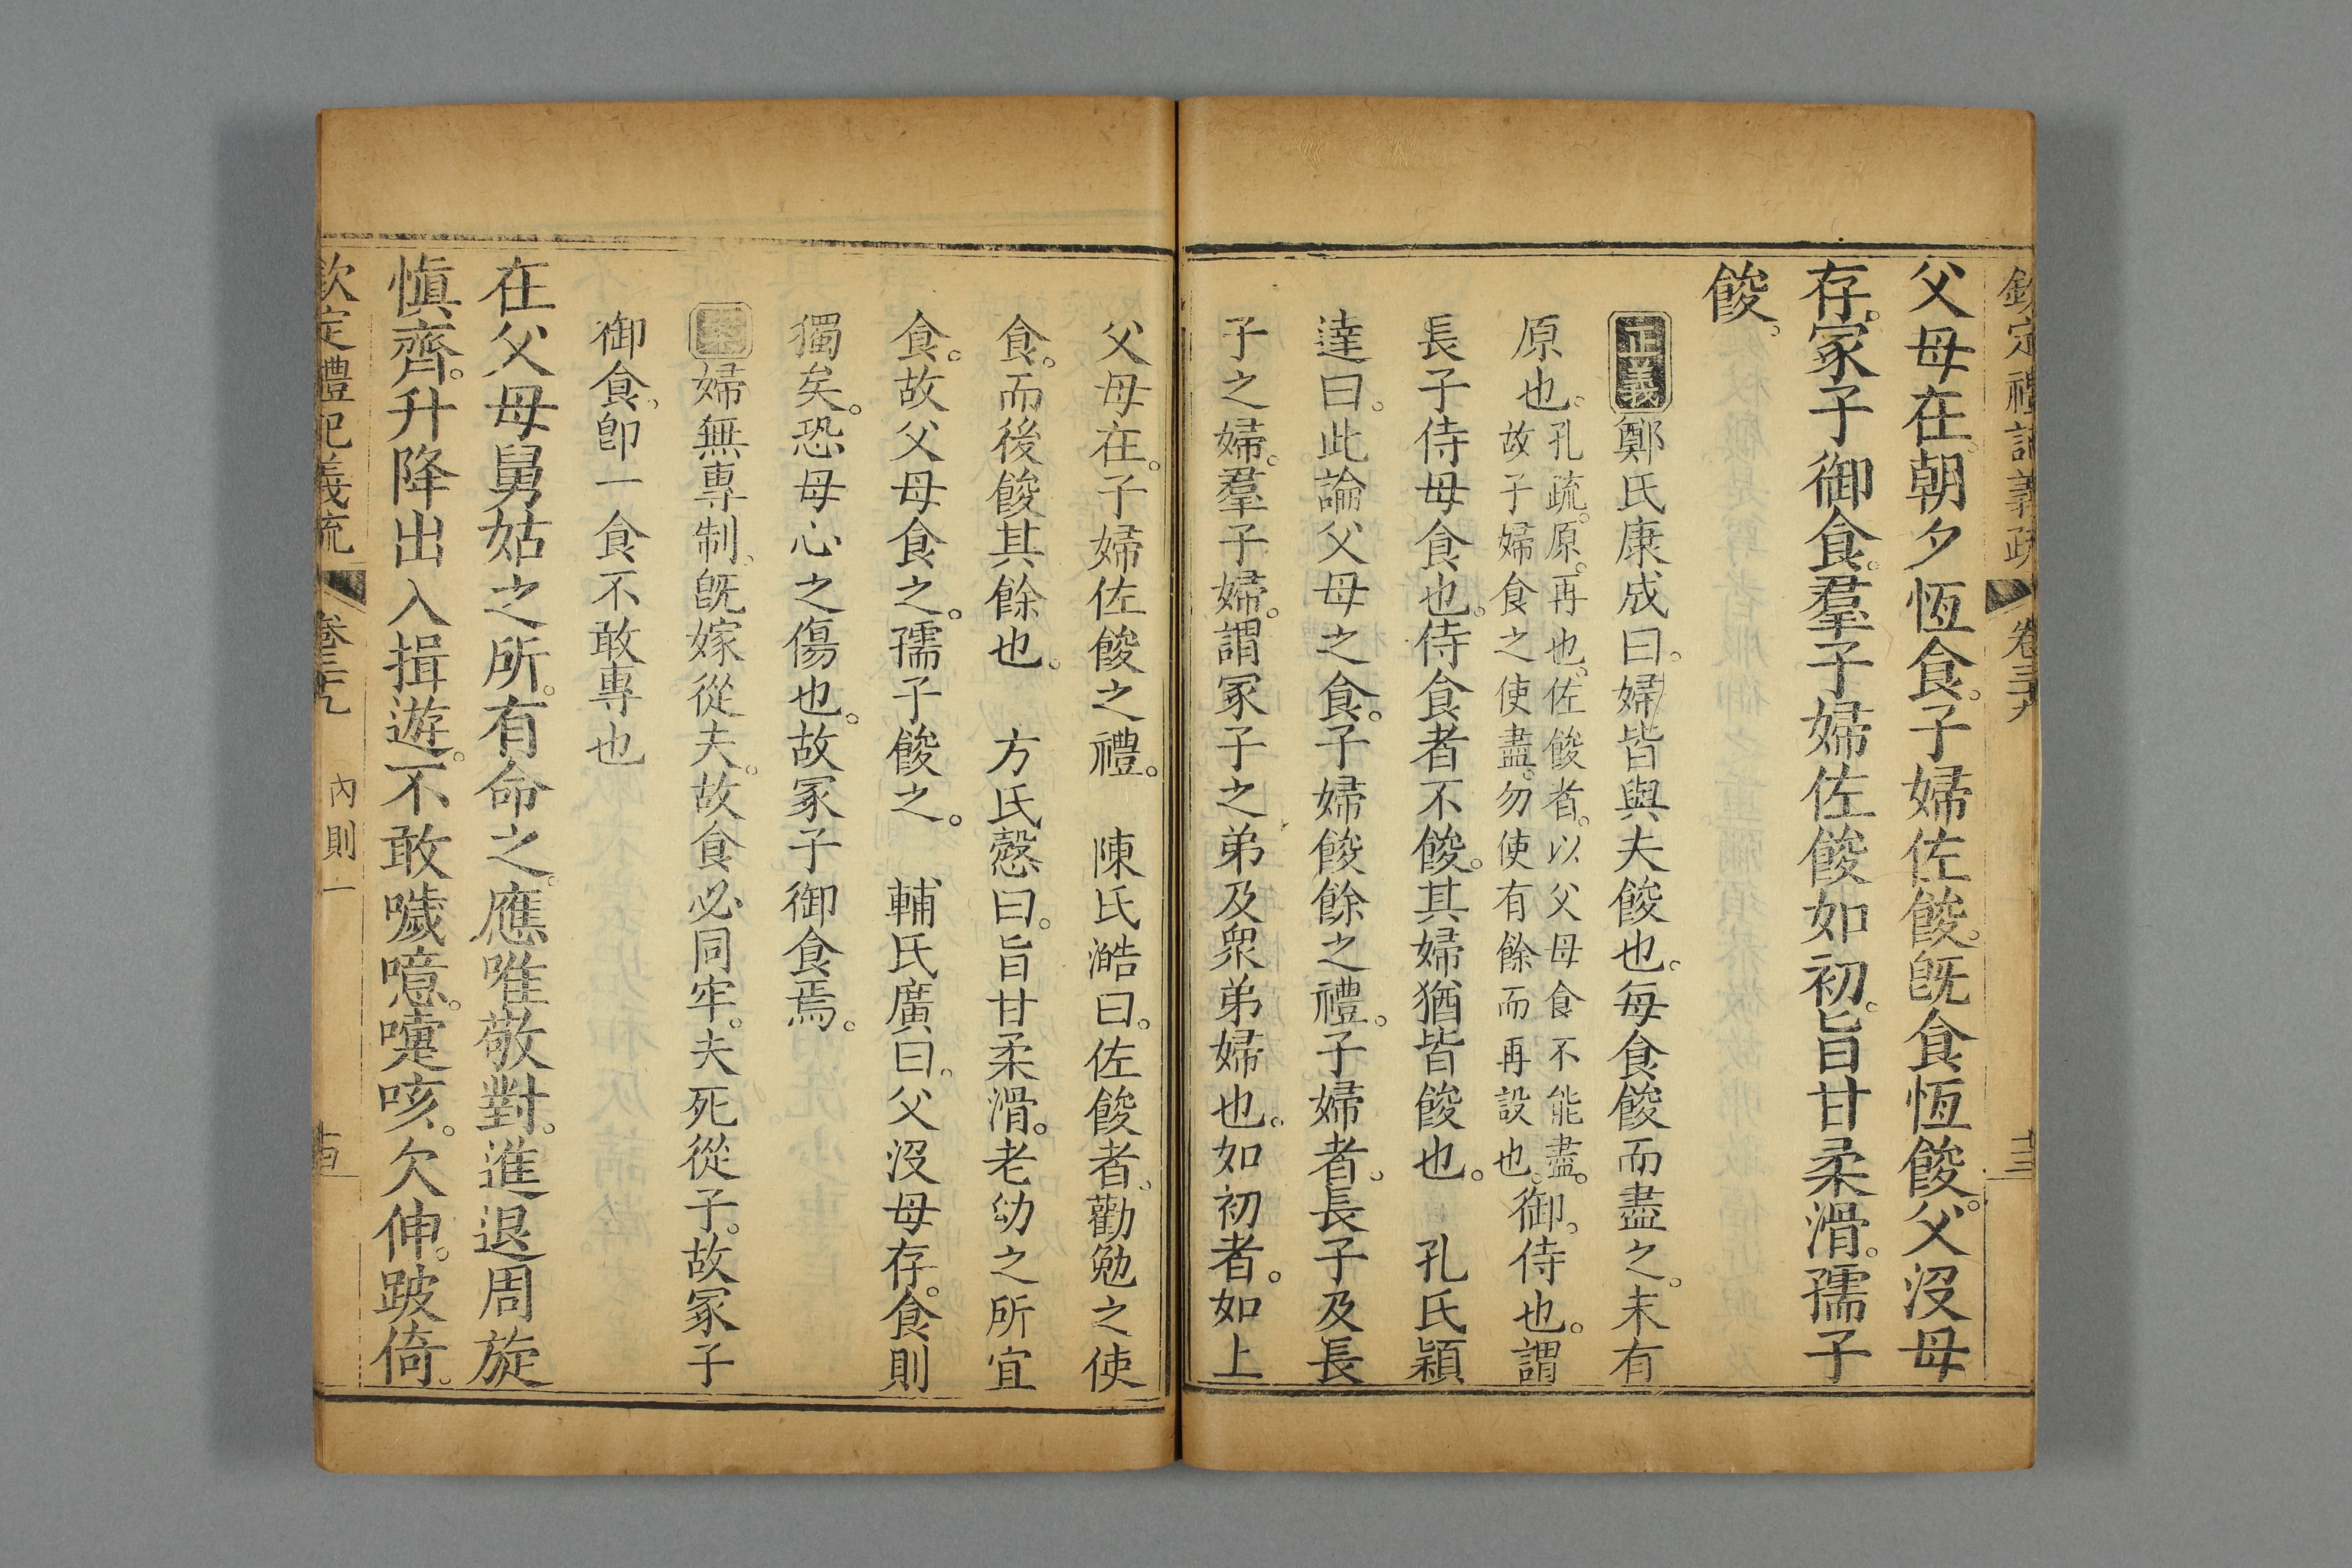 欽定禮記義疏 卷三十九 十三
父母在。朝夕恆食。子婦佐餕。既食恆餕。父沒母
存。冢子御食。羣子婦佐餕如初。旨甘柔滑。孺子
餕。
正義鄭氏康成曰。婦皆與夫餕也。每食餕而盡之。末有
原也。孔疏。原。再也。佐餕者。以父母食不能盡。故子婦食之使盡。勿使有餘而再設也。御。侍也。謂
長子侍母食也。侍食者不餕。其婦猶皆餕也。 孔氏穎
達曰。此論父母之食。子婦餕餘之禮。子婦者。長子及長
子之婦。羣子婦。謂冢子之弟及衆弟婦也。如初者。如上
父母在。子婦佐餕之禮。 陳氏澔曰。佐餕者、勸勉之使
食。而後餕其餘也。 方氏慤曰。旨甘柔滑。老幼之所宜
食。故父母食之。孺子餕之。 輔氏廣曰。父沒母存。食則
獨矣。恐母心之傷也。故冢子御食焉。
案婦無專制、既嫁從夫。故食必同牢。夫死從子。故冢子
御食、卽一食不敢專也
在父母舅姑之所。有命之。應唯敬對。進退周旋
愼齊。升降出入揖遊。不敢噦噫。嚔咳。欠伸。跛倚。
欽定禮記義疏 卷三十九 內則一 十四